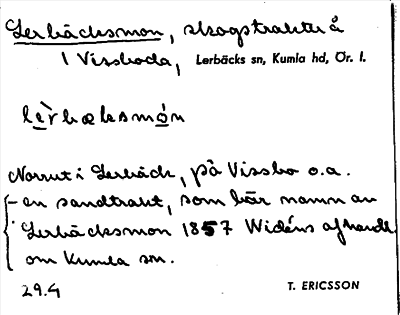 Lerbäcksmon, skogstrakt å
1 Vissboda, Lerbäcks sn, Kumla hd, Ör. l.
lè̱rbæksmo̱n
Norrut i Lerbäck, på Vissbo o.a.
– en sandtrakt, som bär namn av
Lerbäcksmon 1857 Widéns afhandl.
om Kumla sn.
29.4
T. ERICSSON